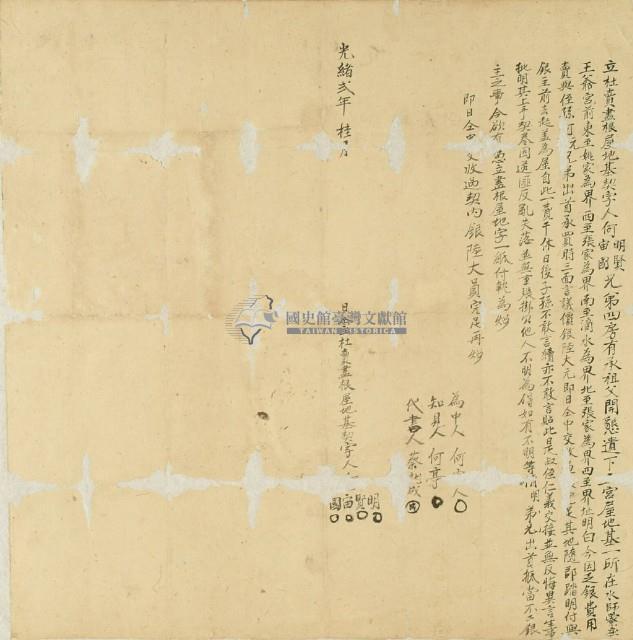 立杜賣盡根屋地基契字人何明賢宙國兄弟四房有承祖父開墾遺下宮屋地基一所在水師寮
王爺宮前東至姚家為界西至張家為界南至滴水為界北至張家為界四至界址明白今因乏銀費用
賣與侄孫 元兄弟出首承買時三面言議價銀陸大元即日仝中交收 足其地隨即踏明付與
銀主前去起蓋為屋自此一賣千休日後子孫不敢言贖亦不敢言貼此日是叔侄仁義交接並無反悔異言生事
批明其上手契卷因遇匪反亂失落並無重張掛他人不明為碍如有不明等情明弟兄出首抵當不干銀
主之事今欲有憑立盡根屋地字一紙付執為炤
即日仝中交收過契內銀陸大員完足再炤
光緒弍年桂月
為中人何 人
知見人何亭
代書人蔡 成
日仝立杜賣盡根屋地基契字人
明
賢
宙
國
國史館臺灣文獻館
TAIWAN HISTORICA